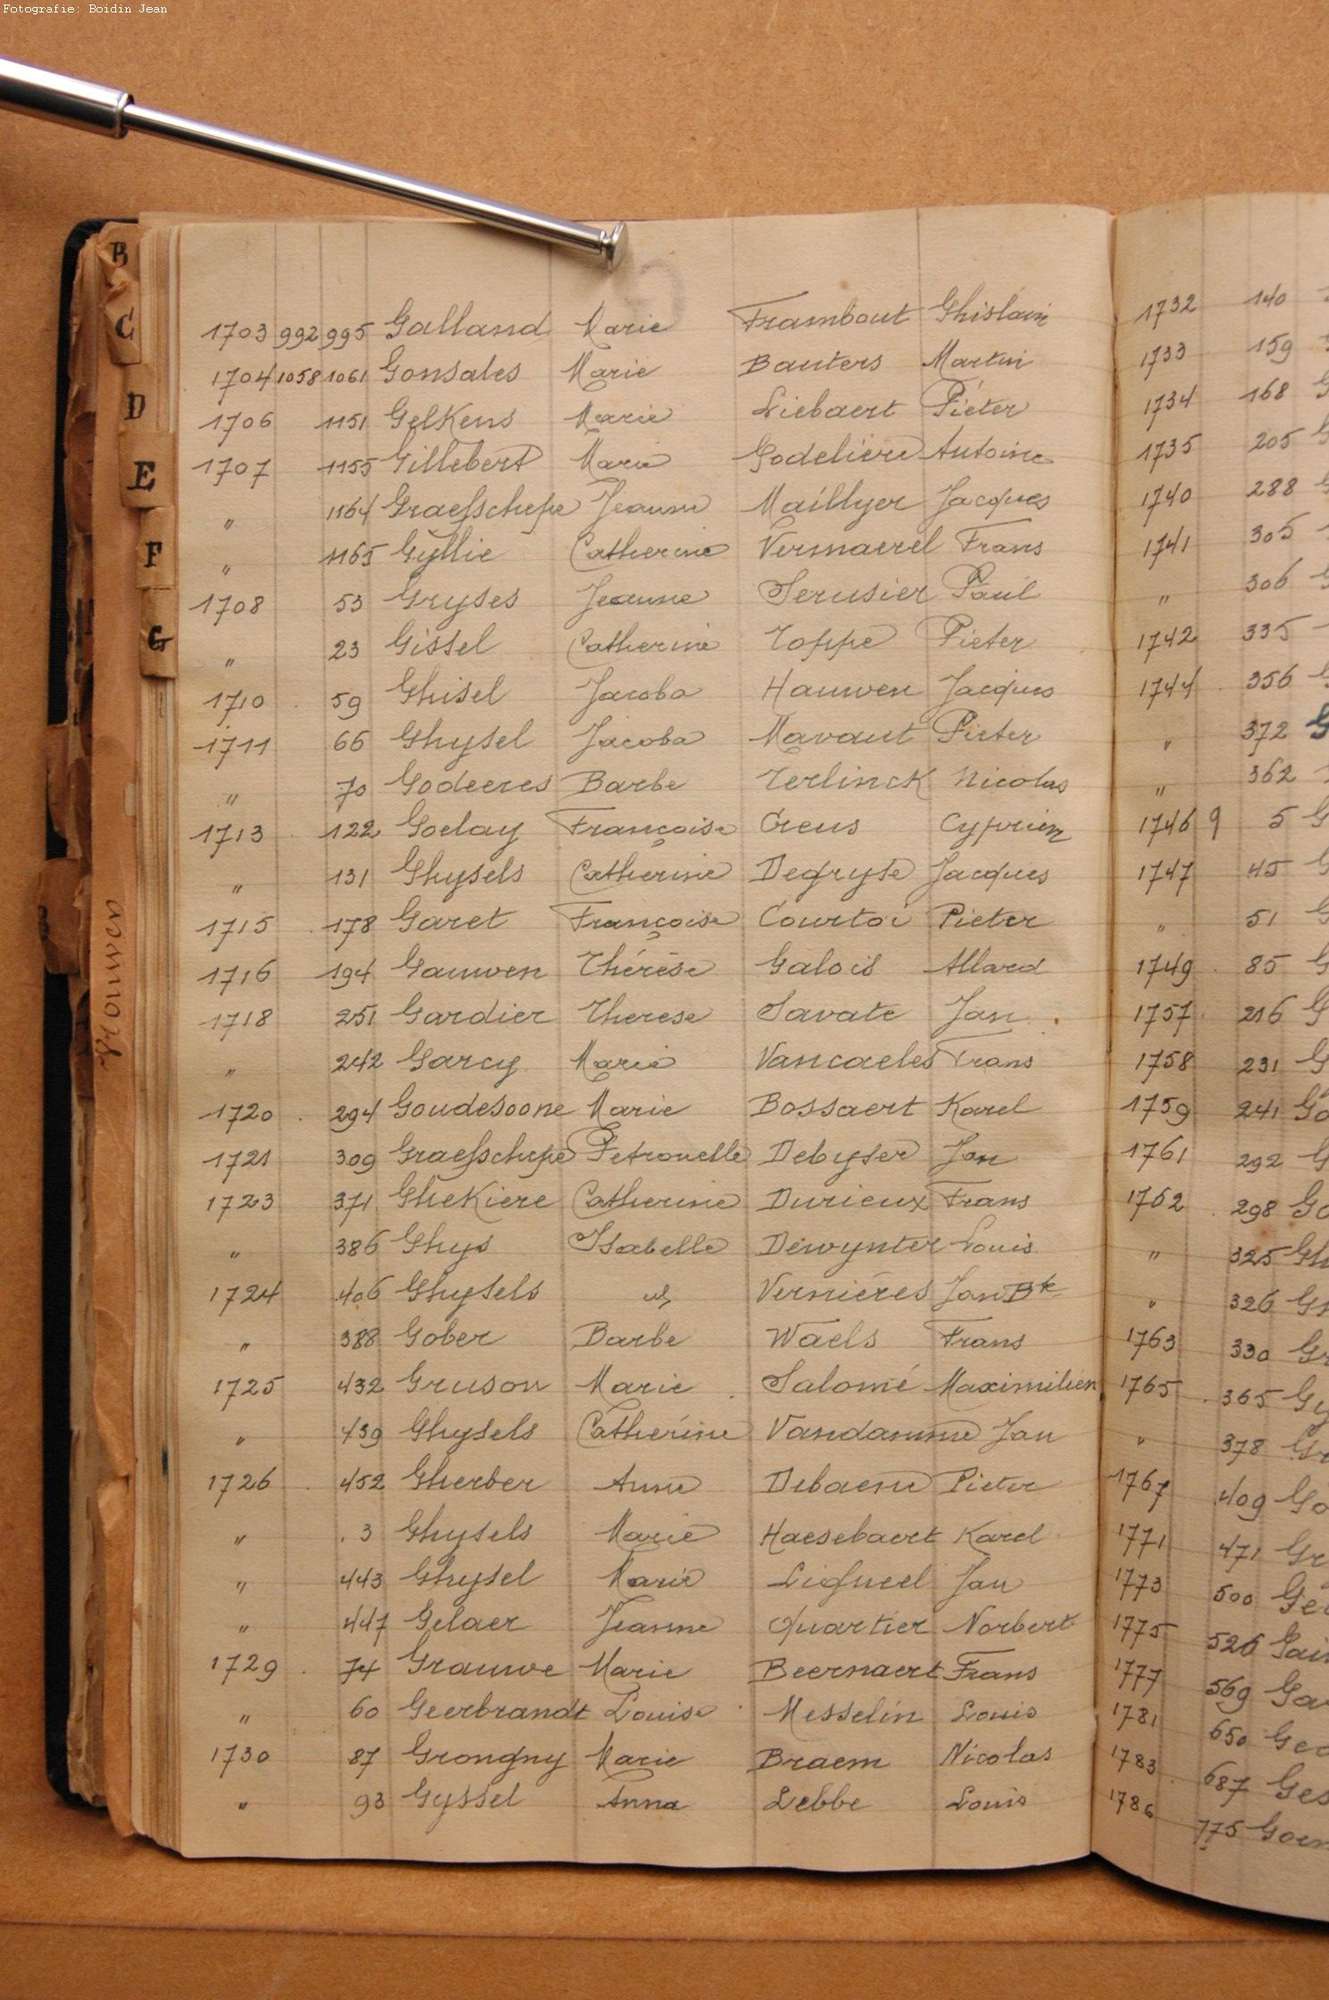 Fotografie: Boidin Jean
B
C
D
E
F
G
Vrouwen
G
1703 992 995 Galland Marie Frambout Ghislain
1704 1058 1061 Gonsales Marie Bauters Martin
1706 1151 Gelkens Marie Liebaert Piéter
1707 1155 Gillebert Marie Godelière Antoine
" 1164 Graefschepe Jeanne Maillyer Jacques
" 1165 Gyllie Catherine Vermaerel Frans
1708 53 Gryses Jeanne Serusier Paul
" 23 Gissel Catherine Toppe Pieter
1710 59 Ghisel Jacoba Hauwen Jacques
1711 66 Ghysel Jacoba Mavaut Pieter
" 70 Godeeres Barbe Terlinck Nicolas
1713 122 Goelay Françoise Creus Cyprien
" 131 Ghysels Catherine Degryse Jacques
1715 178 Garet Françoise Courtoi Pieter
1716 194 Gauwen Thérèse Galois Allard
1718 251 Gardier Therese Savate Jan
" 242 Garcy Marie Vancaeles Frans
1720 294 Goudesoone Marie Bossaert Karel
1721 309 Graefschepe Petronelle Debyser Jan
1723 371 Ghekiere Catherine Durieux Frans
" 386 Ghys Isabelle Dewynter Louis
1724 406 Ghysels Vernières Jan Bte
" 388 Gober Barbe Waels Frans
1725 432 Gruson Marie Salomé Maximilien
" 439 Ghysels Catherine Vandamme Jan
1726 452 Gherber Anne Debaene Pieter
" 3 Ghysels Marie Haesebaert Karel
" 443 Ghysel Marie Ligneel Jan
" 447 Gelaer Jeanne Quartier Norbert
1729 74 Grauwe Marie Beernaert Frans
" 60 Geerbrandt Louise Messelin Louis
1730 87 Grongny Marie Braem Nicolas
" 93 Gyssel Anna Lebbe Louis
1732 140
1733 159
1734 168 G
1735 205 G
1740 288 G
1741 305
" 306 G
1742 335
1744 356 G
" 372 G
" 362
1746 9 5 G
1747 45 G
" 51 G
1749 85 G
1757 216 G
1758 231 G
1759 241 Go
1761 292 G
1762 298 Go
" 325 Gh
" 326 Gh
1763 330 Gr
1765 365 Gy
" 378 Gr
1767 409 Go
1771 471 Gr
1773 500 Ge
1775 526 Gai
1777 569 Ga
1781 650 Gee
1783 687 Ges
1786 775 Goe